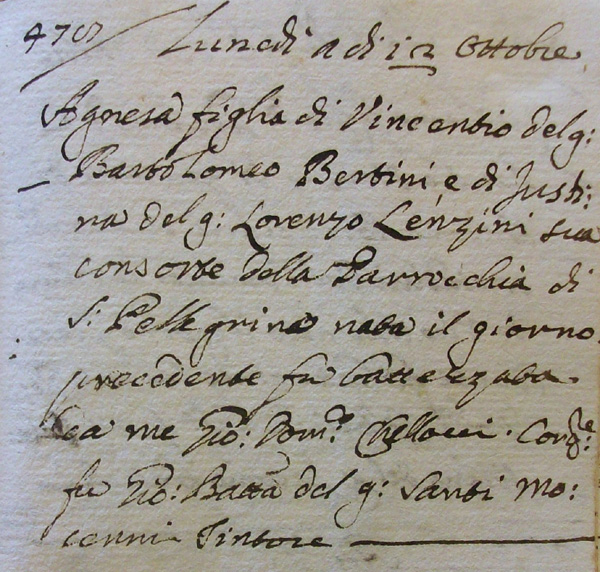 4707 Lunedi a di 12 Ottobre
Agnesa figlia di Vincentio del q:
Bartolomeo Bertini, e di Justi:
na del q: Lorenzo Lenzini sua
consorte della Parrochia di
S: Pellegrino nata il giorno
precedente fu battezzata
da me Gio: Dom:co Chellucci. Com:re
fu Gio: Batta del q: Santi Mo:
cenni Tintore